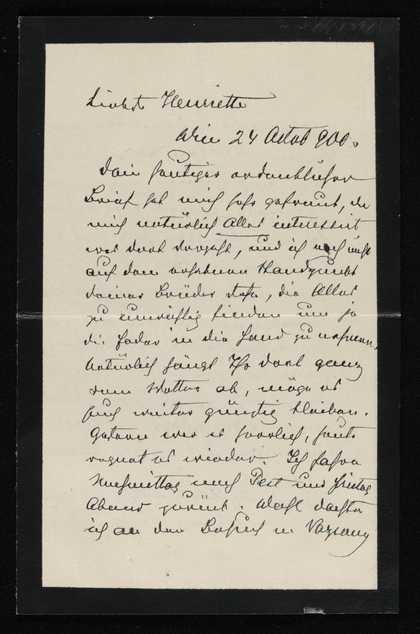 Liebste Henriette
Wien 24 Octob 900.
Dein heutiger ordentlicher
Brief hat mich sehr gefreut, da
mich natürlich Alles interessirt
was dort vorgeht, und ich noch nicht
auf dem erhabenen Standpunkt
Deiner Brüder stehe, die Alles
zu unwichtig finden um je
die Feder in die Hand zu nehmen.
Natürlich hängt Ihr dort ganz
vom Wetter ab, möge es
Euch weiter günstig bleiben.
Gestern war es herrlich, heute
regnet es wieder. Ich fahre
Nachmittag nach Pest und Freitag
Abend zurück. Wohl dachte
ich an den Besuch in